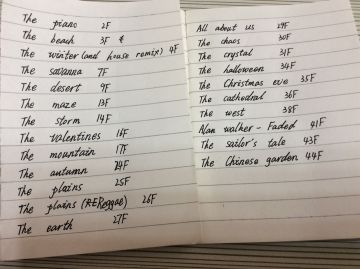 The piano 2F
The beach 3F &
The winter (and house remix) 4F
The savanna 7F
The desert 9F
The maze 13F
The storm 14F
The valentines 16F
The mountain 17F
The autumn 24F
The plains 25F
The plains (Reggae) 26F
The earth 27F
All about us 29F
The chaos 30F
The crystal 31F
The halloween 34F
The Christmas eve 35F
The cathedral 36F
The west 38F
Alan walker - Faded 41F
The sailor's tale 43F
The Chinese garden 44F